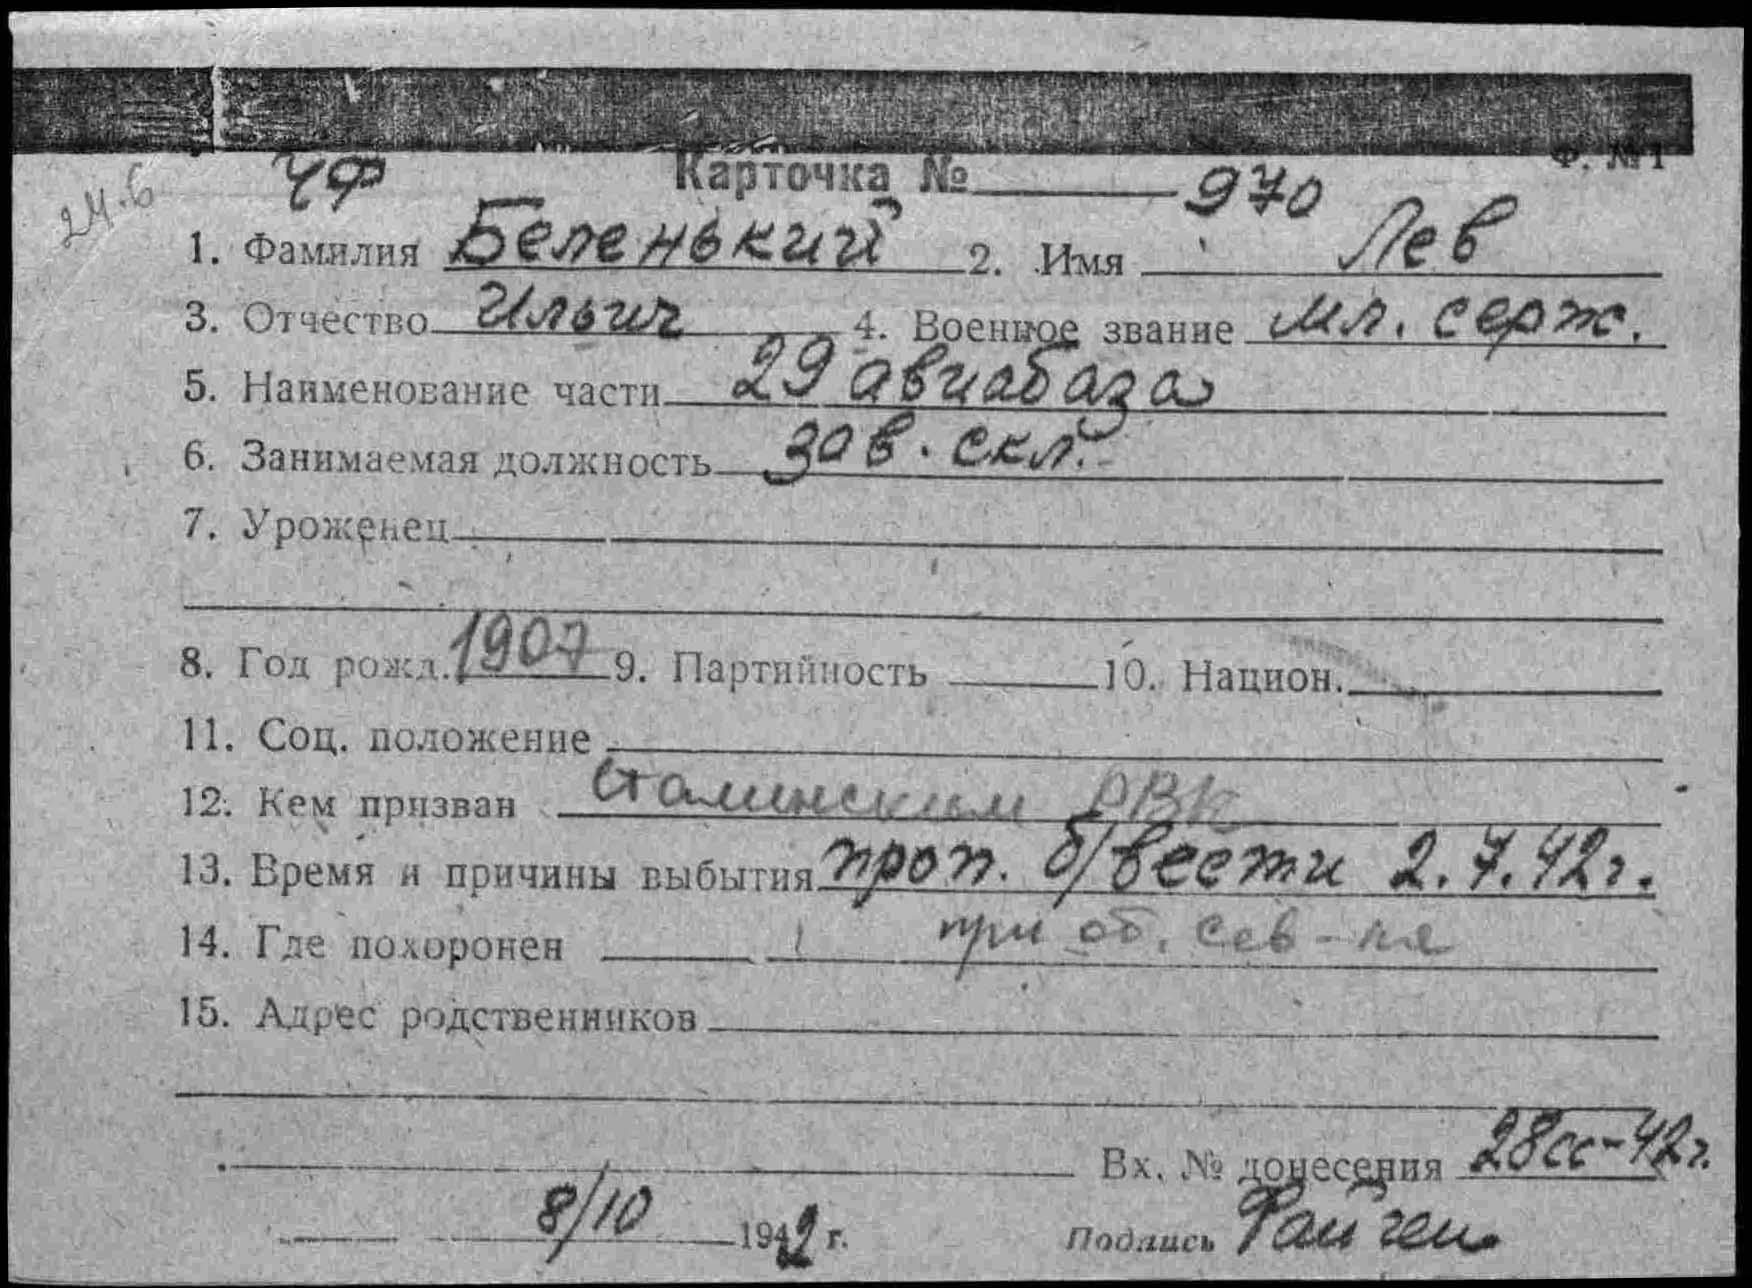 Ф. №1
24.6 ЧФ Карточка № 970
1. Фамилия Беленький 2. Имя Лев
3. Отчество Ильич 4. Военное звание мл. серж.
5. Наименование части 29 авиабаза
6. Занимаемая должность зав. скл.
7. Уроженец
8. Год рожд. 1907 9. Партийность 10. Национ.
11. Соц. положение
12. Кем призван Сталинским РВК
13. Время и причины выбытия проп. б/вести 2.7.42г.
14. Где похоронен при об. Сев-ля
15. Адрес родственников
Вх. № донесения 28сс-42г.
8/10 1942 г. Подпись